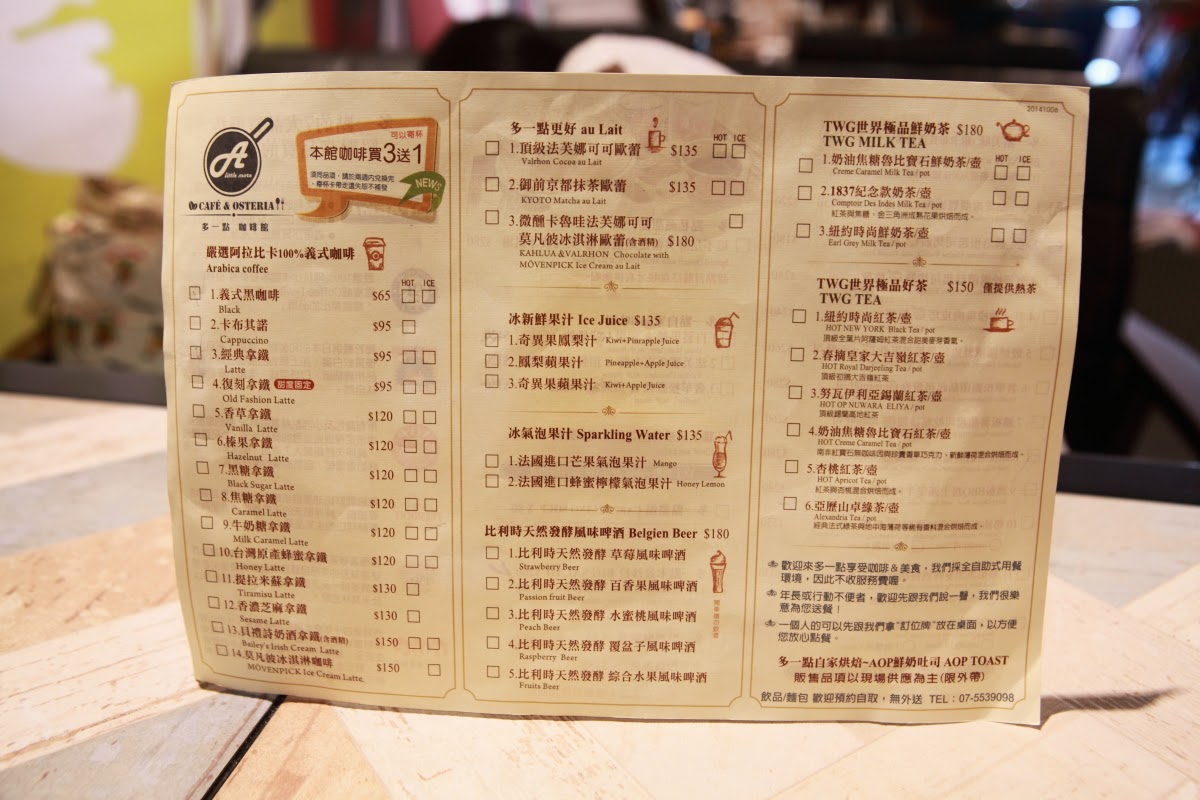 A
little more
CAFÉ & OSTERIA
多一點 咖啡館
可以寄杯
本館咖啡買3送1
NEWS
嚴選阿拉比卡100%義式咖啡
Arabica coffee
HOT ICE
1.義式黑咖啡 $65
Black
2.卡布其諾 $95
Cappuccino
3.經典拿鐵 $95
Latte
4.復刻拿鐵 甜度固定 $95
Old Fashion Latte
5.香草拿鐵 $120
Vanilla Latte
6.榛果拿鐵 $120
Hazelnut Latte
7.黑糖拿鐵 $120
Black Sugar Latte
8.焦糖拿鐵 $120
Caramel Latte
9.牛奶糖拿鐵 $120
Milk Caramel Latte
10.台灣原產蜂蜜拿鐵 $120
Honey Latte
11.提拉米蘇拿鐵 $130
Tiramisu Latte
12.香濃芝麻拿鐵 $130
Sesame Latte
13.貝禮詩奶酒拿鐵(含酒精) $150
Bailey's Irish Cream Latte
14.莫凡彼冰淇淋咖啡 $150
MÖVENPICK Ice Cream Latte
多一點更好 au Lait
HOT ICE
1.頂級法芙娜可可歐蕾 $135
Valrhon Cocoa au Lait
2.御前京都抹茶歐蕾 $135
KYOTO Matcha au Lait
3.微醺卡魯哇法芙娜可可
莫凡彼冰淇淋歐蕾(含酒精) $180
KAHLUA &VALRHON Chocolate with
MÖVENPICK Ice Cream au Lait
冰新鮮果汁 Ice Juice $135
1.奇異果鳳梨汁 Kiwi+Pinrapple Juice
2.鳳梨蘋果汁 Pineapple+Apple Juice
3.奇異果蘋果汁 Kiwi+Apple Juice
冰氣泡果汁 Sparkling Water $135
1.法國進口芒果氣泡果汁 Mango
2.法國進口蜂蜜檸檬氣泡果汁 Honey Lemon
比利時天然發酵風味啤酒 Belgien Beer $180
1.比利時天然發酵 草莓風味啤酒
Strawberry Beer
2.比利時天然發酵 百香果風味啤酒
Passion fruit Beer
3.比利時天然發酵 水蜜桃風味啤酒
Peach Beer
4.比利時天然發酵 覆盆子風味啤酒
Raspberry Beer
5.比利時天然發酵 綜合水果風味啤酒
Fruits Beer
20141006
TWG世界極品鮮奶茶 $180
TWG MILK TEA
HOT ICE
1.奶油焦糖魯比寶石鮮奶茶/壺
Creme Caramel Milk Tea / pot
2.1837紀念款奶茶/壺
Comptoir Des Indes Milk Tea / pot
紅茶與焦糖、金三角洲成熟花果烘焙而成。
3.紐約時尚鮮奶茶/壺
Earl Grey Milk Tea / pot
TWG世界極品好茶 $150 僅提供熱茶
TWG TEA
1.紐約時尚紅茶/壺
HOT NEW YORK Black Tea / pot
頂級全葉片阿薩姆紅茶混合甜美麥芽香氣。
2.春摘皇家大吉嶺紅茶/壺
HOT Royal Darjeeling Tea / pot
頂級初摘大吉嶺紅茶
3.努瓦伊利亞錫蘭紅茶/壺
HOT OP NUWARA ELIYA / pot
頂級錫蘭高地紅茶
4.奶油焦糖魯比寶石紅茶/壺
HOT Creme Caramel Tea / pot
5.杏桃紅茶/壺
HOT Apricot Tea / pot
紅茶與杏桃混合烘焙而成。
6.亞歷山卓綠茶/壺
Alexandria Tea / pot
歡迎來多一點享受咖啡&美食，我們採全自助式用餐
環境，因此不收服務費喔。
年長或行動不便者，歡迎先跟我們說一聲，我們很樂
意為您送餐！
一個人的可以先跟我們拿"訂位牌"放在桌面，以方便
您放心點餐。
多一點自家烘焙~AOP鮮奶吐司 AOP TOAST
販售品項以現場供應為主(限外帶)
飲品/麵包 歡迎預約自取，無外送 TEL：07-5539098